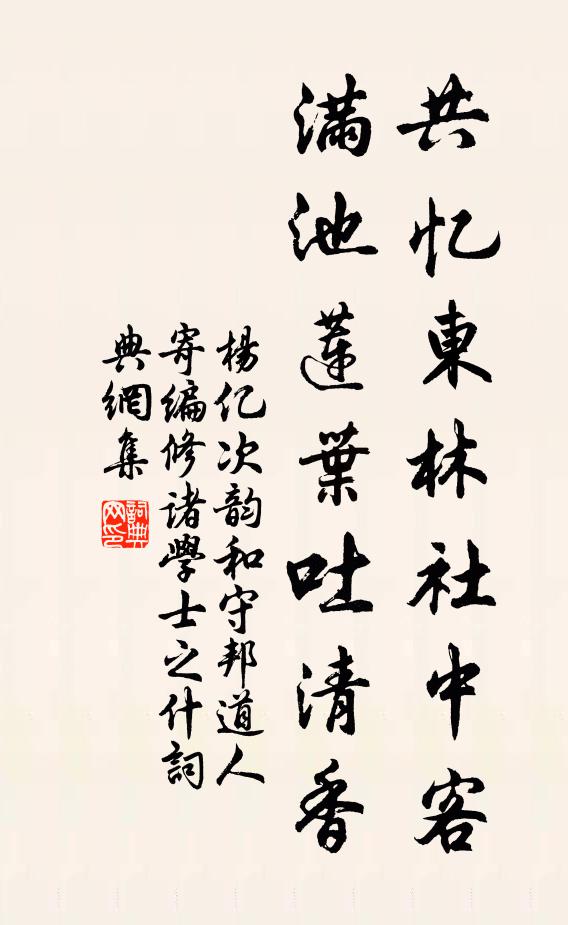 共忆東林社中客
满池蓮葉吐清香
楊亿次韵和守邦道人
寄编修诸學士之什詞
典網集
詞典网印